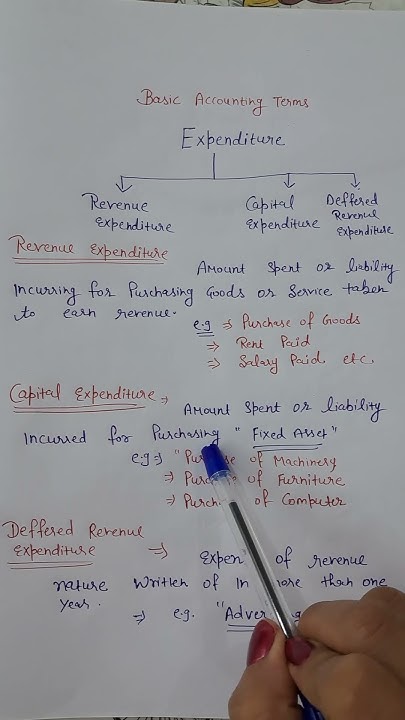 Basic Accounting Terms
Expenditure
Revenue Expenditure
Capital Expenditure
Deffered Revenue Expenditure
Revenue Expenditure
Amount Spent or liability
Incurring for Purchasing Goods or Service taken
to earn revenue.
e.g ⇒ Purchase of Goods
⇒ Rent Paid
⇒ Salary Paid, etc.
Capital Expenditure ⇒
Amount Spent or liability
Incurred for Purchasing "Fixed Asset"
e.g ⇒ " of Machinery
⇒ of Furniture
⇒ of Computer
Deffered Revenue
Expenditure ⇒ of revenue
nature written of in than one
year.
⇒ e.g. "